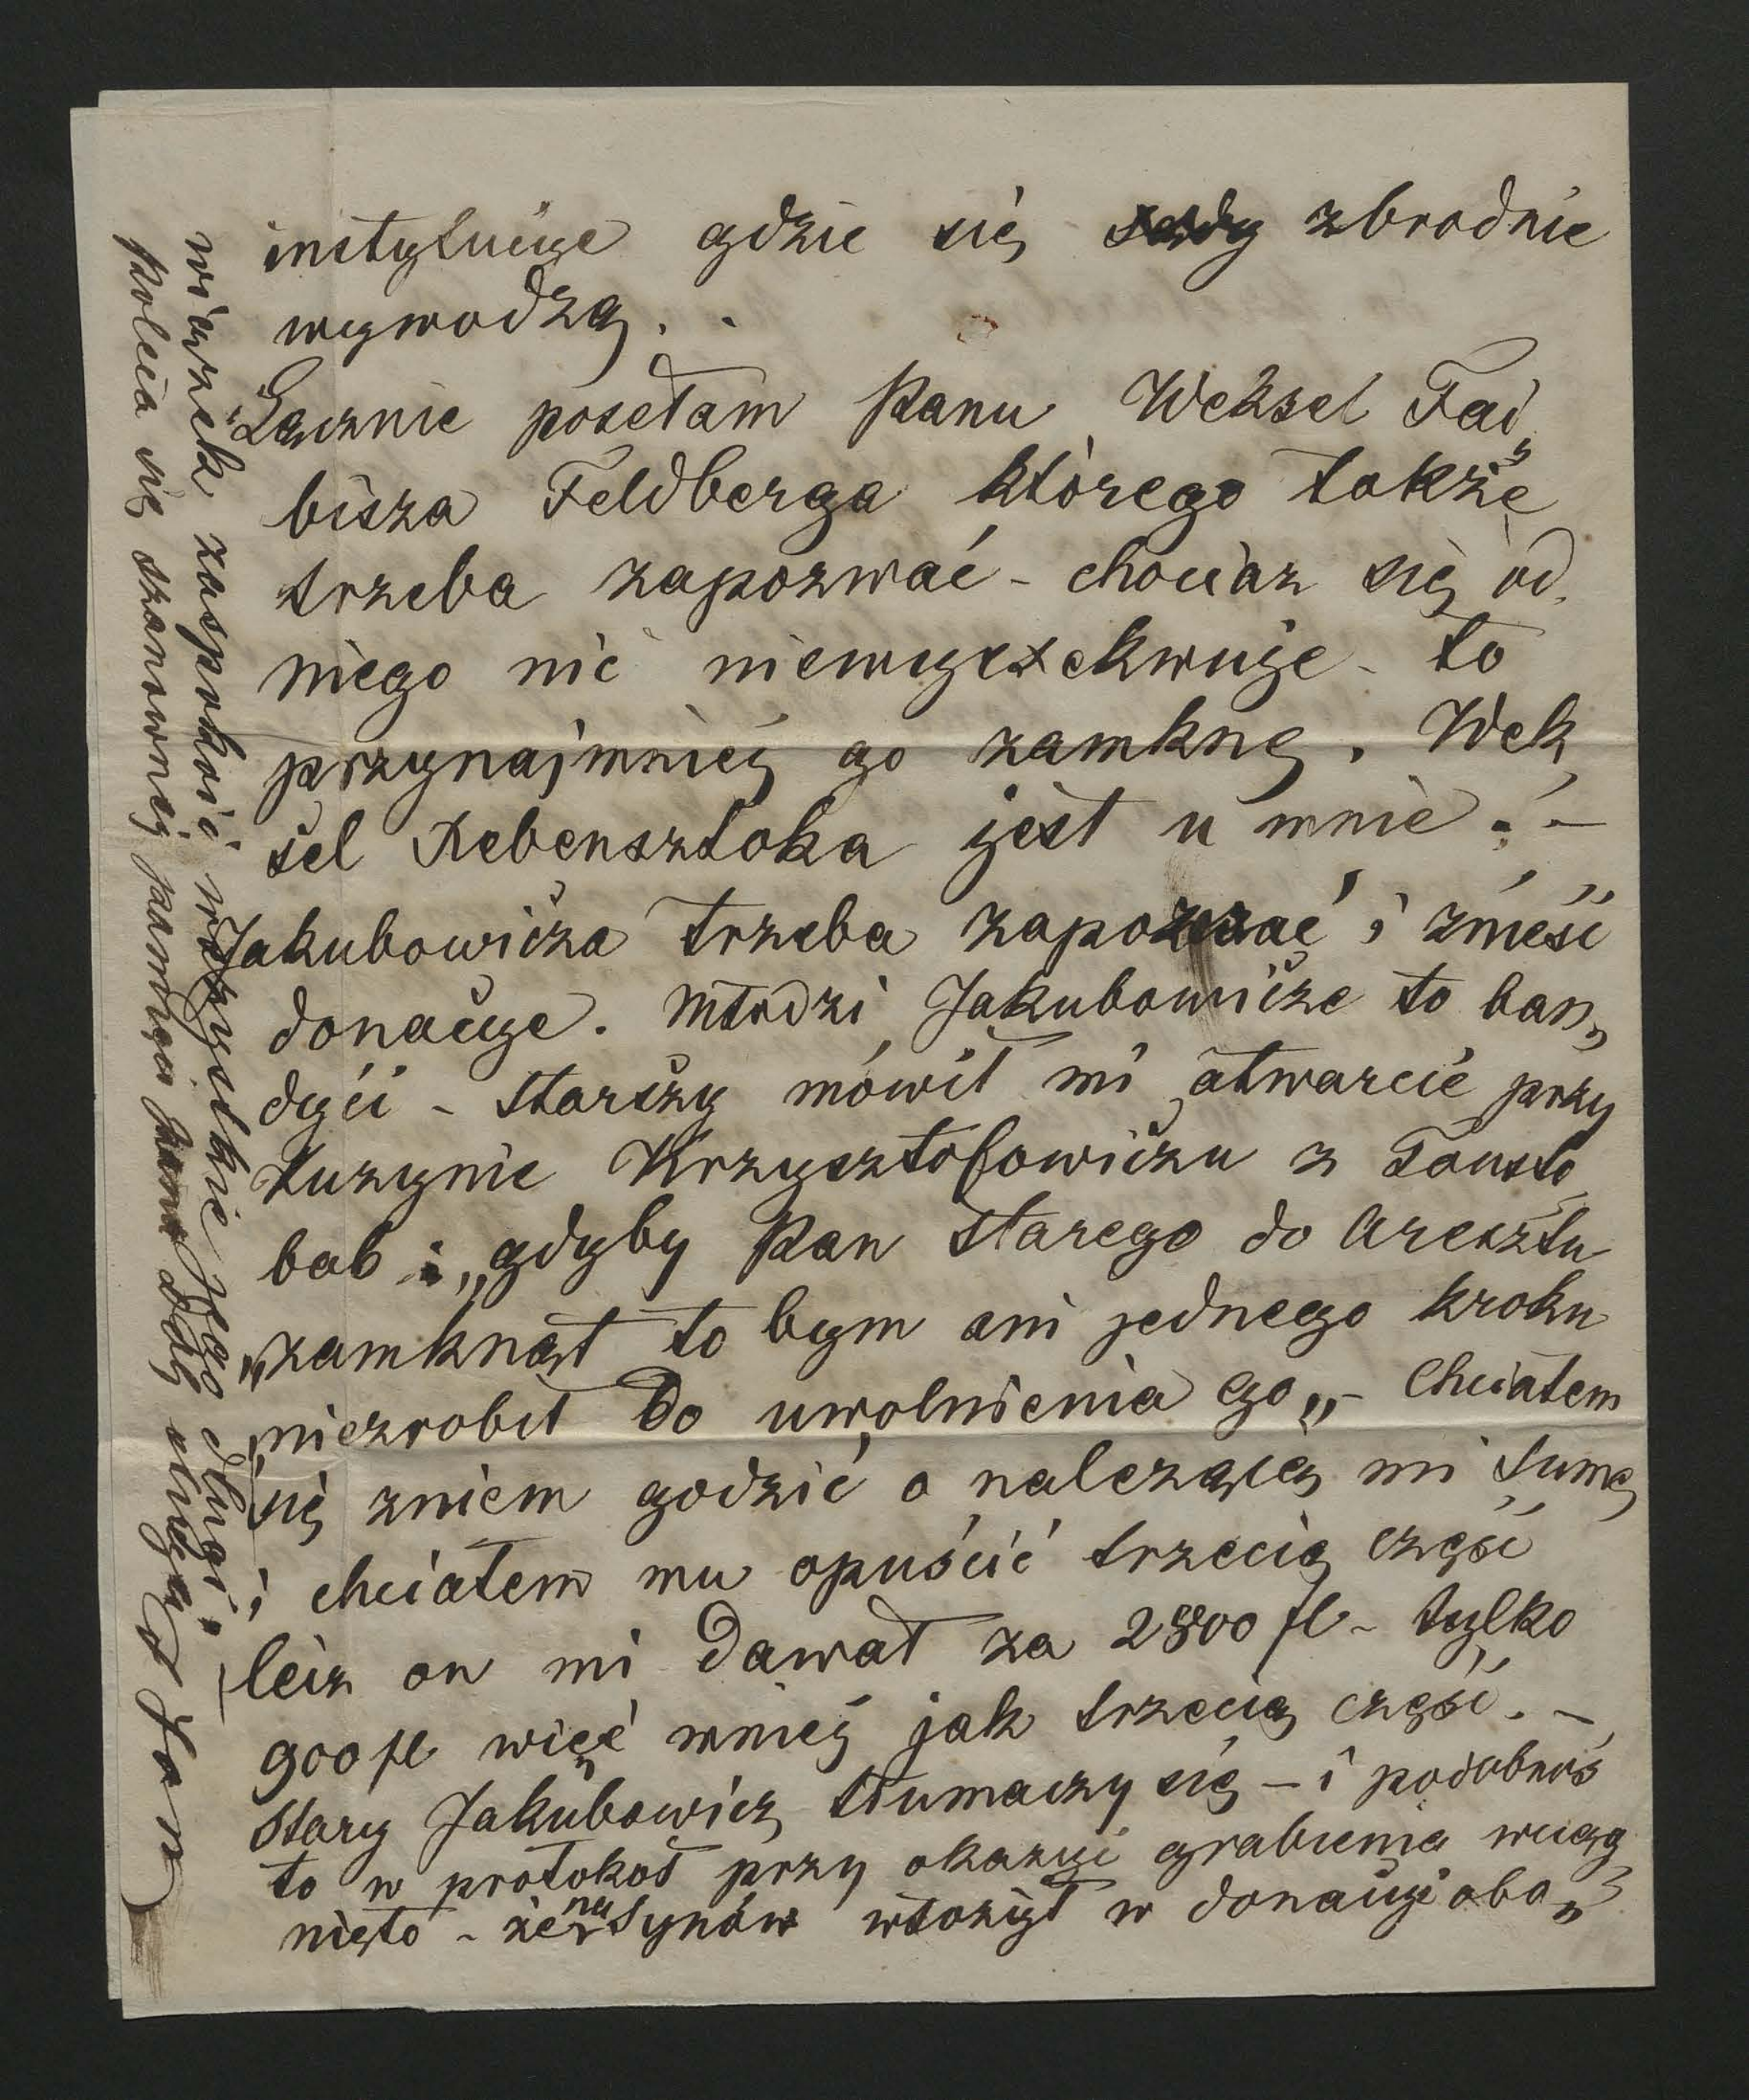 instytucye gdzie się zbrodnie
wywodzą. .
Łącznie posełam Panu Weksel Fai„
bisza Feldberga którego takżę
trzeba zapozwać - chociaz się od
niego nić niewyexekwuje - to
przynajmnięj go zamknę. Wek
sel Rebensztoka jest u mnie. -
Jakubowicza trzeba zapozwać i znieść
donacye. Młodzi Jakubowicze to ban„
dyci - starszy mówił mi otwarcie przy
Kuzynie Krzysztofowiczu z Tousto
bab „gdyby Pan starego do aresztu
„zamknął to bym ani jednego kroku
„niezrobił do uwolnienia go„ - Chciałem
się zniem godzić o należącą mi sumę
i chciałem mu opuścić trzecią część
lecz on mi dawał za 2800 fl - tylko
900 fl więc mnięj jak trzecią część. -
Stary Jakubowicz tłumaczy się - i podobnoś
to w protokoł przy okazyi grabienia wciąg
nięto - że na Synów włożył w donacyi obo„
wiązek zaspokoić wszystkie jego długi. -
Poleca się szanownej pamięci Pana sługa Jan